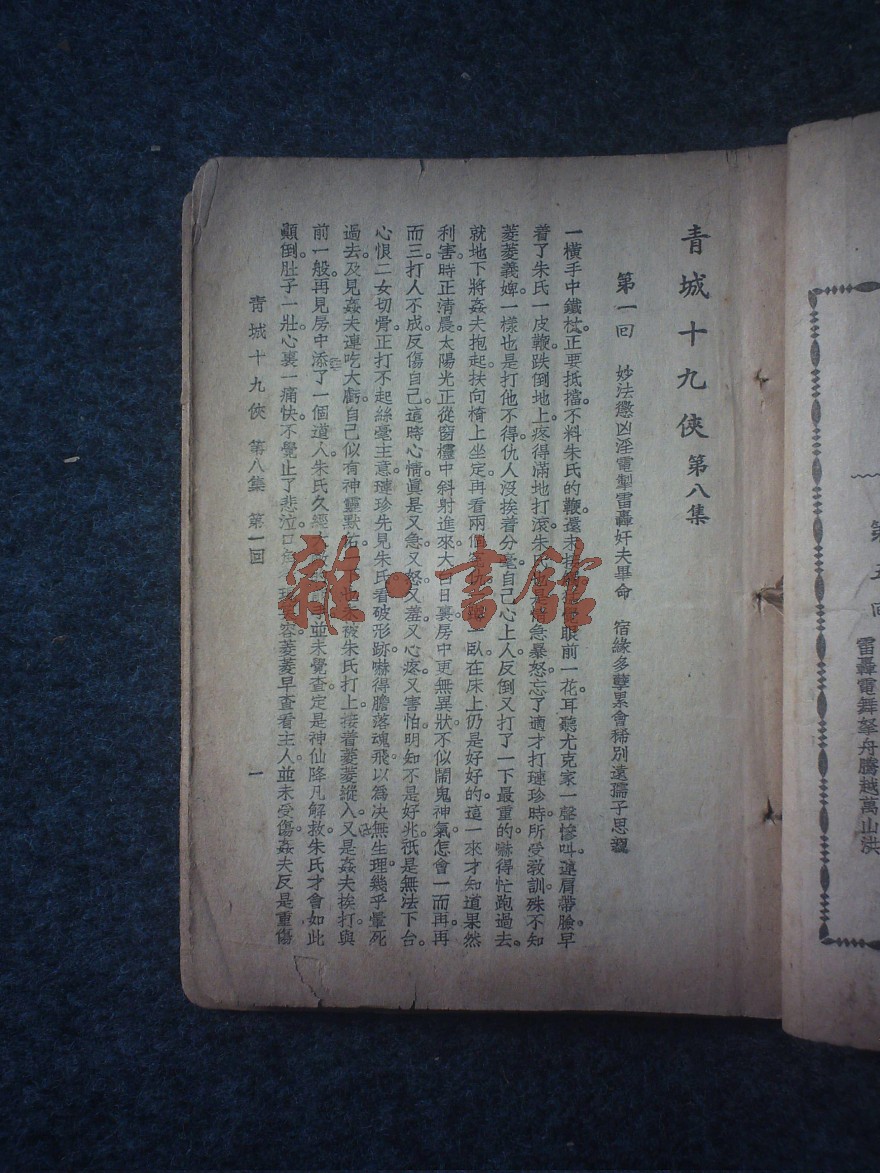 第五回　雷轟電舞拏舟騰越萬山洪
青城十九俠 第八集
第一回　妙法懲凶淫電掣雷轟奸夫畢命　宿緣多孽累會稀別遠孺子思親
一橫手中鐵杖正要抵擋不料朱氏的鞭還未　眼前一花耳聽尤克家一聲慘叫連肩帶臉早
着了朱氏一皮鞭跌倒地上。疼得滿地打滾。朱氏也是情急暴怒忘了適才打璉珍時所受敎訓殊不知
菱菱義婢一樣也是打他不得。仇人沒挨着分毫。自己心上人反倒又打了一下最重的。嚇得忙跑過去。
就地下將姦夫抱起扶向椅上坐定。再看兩個　臥在床上仍是好好的。這一來才知道果然
利害。時正清晨。太陽光正從窗櫺中斜射進來。大白日裏房中更無異狀不似鬧鬼神氣。怎會一而再再
而三。打人不成反傷自己。這時心情眞是又急又怒又羞又心疼又害怕。明知不是好兆。祇是無法下台。
心恨二女切骨。正打不起絲毫主意。璉珍先見朱氏看破形跡嚇得膽落魂飛。以爲決無生理。幾乎暈死
過去。及見姦夫連吃大虧。自己似有神靈默佑。　被朱氏打上。接着菱菱縱入。又是姦夫挨打與
前一般。再見房中添了一個道人。朱氏久經　並未覺查定是神仙降凡解救朱氏才會如此
顚倒。肚子一壯心裏一痛快不覺止了悲泣。口角　容菱菱早查看主人。並未受傷。姦夫反是重傷
青城十九俠　第八集　第一回　一
雜·書館